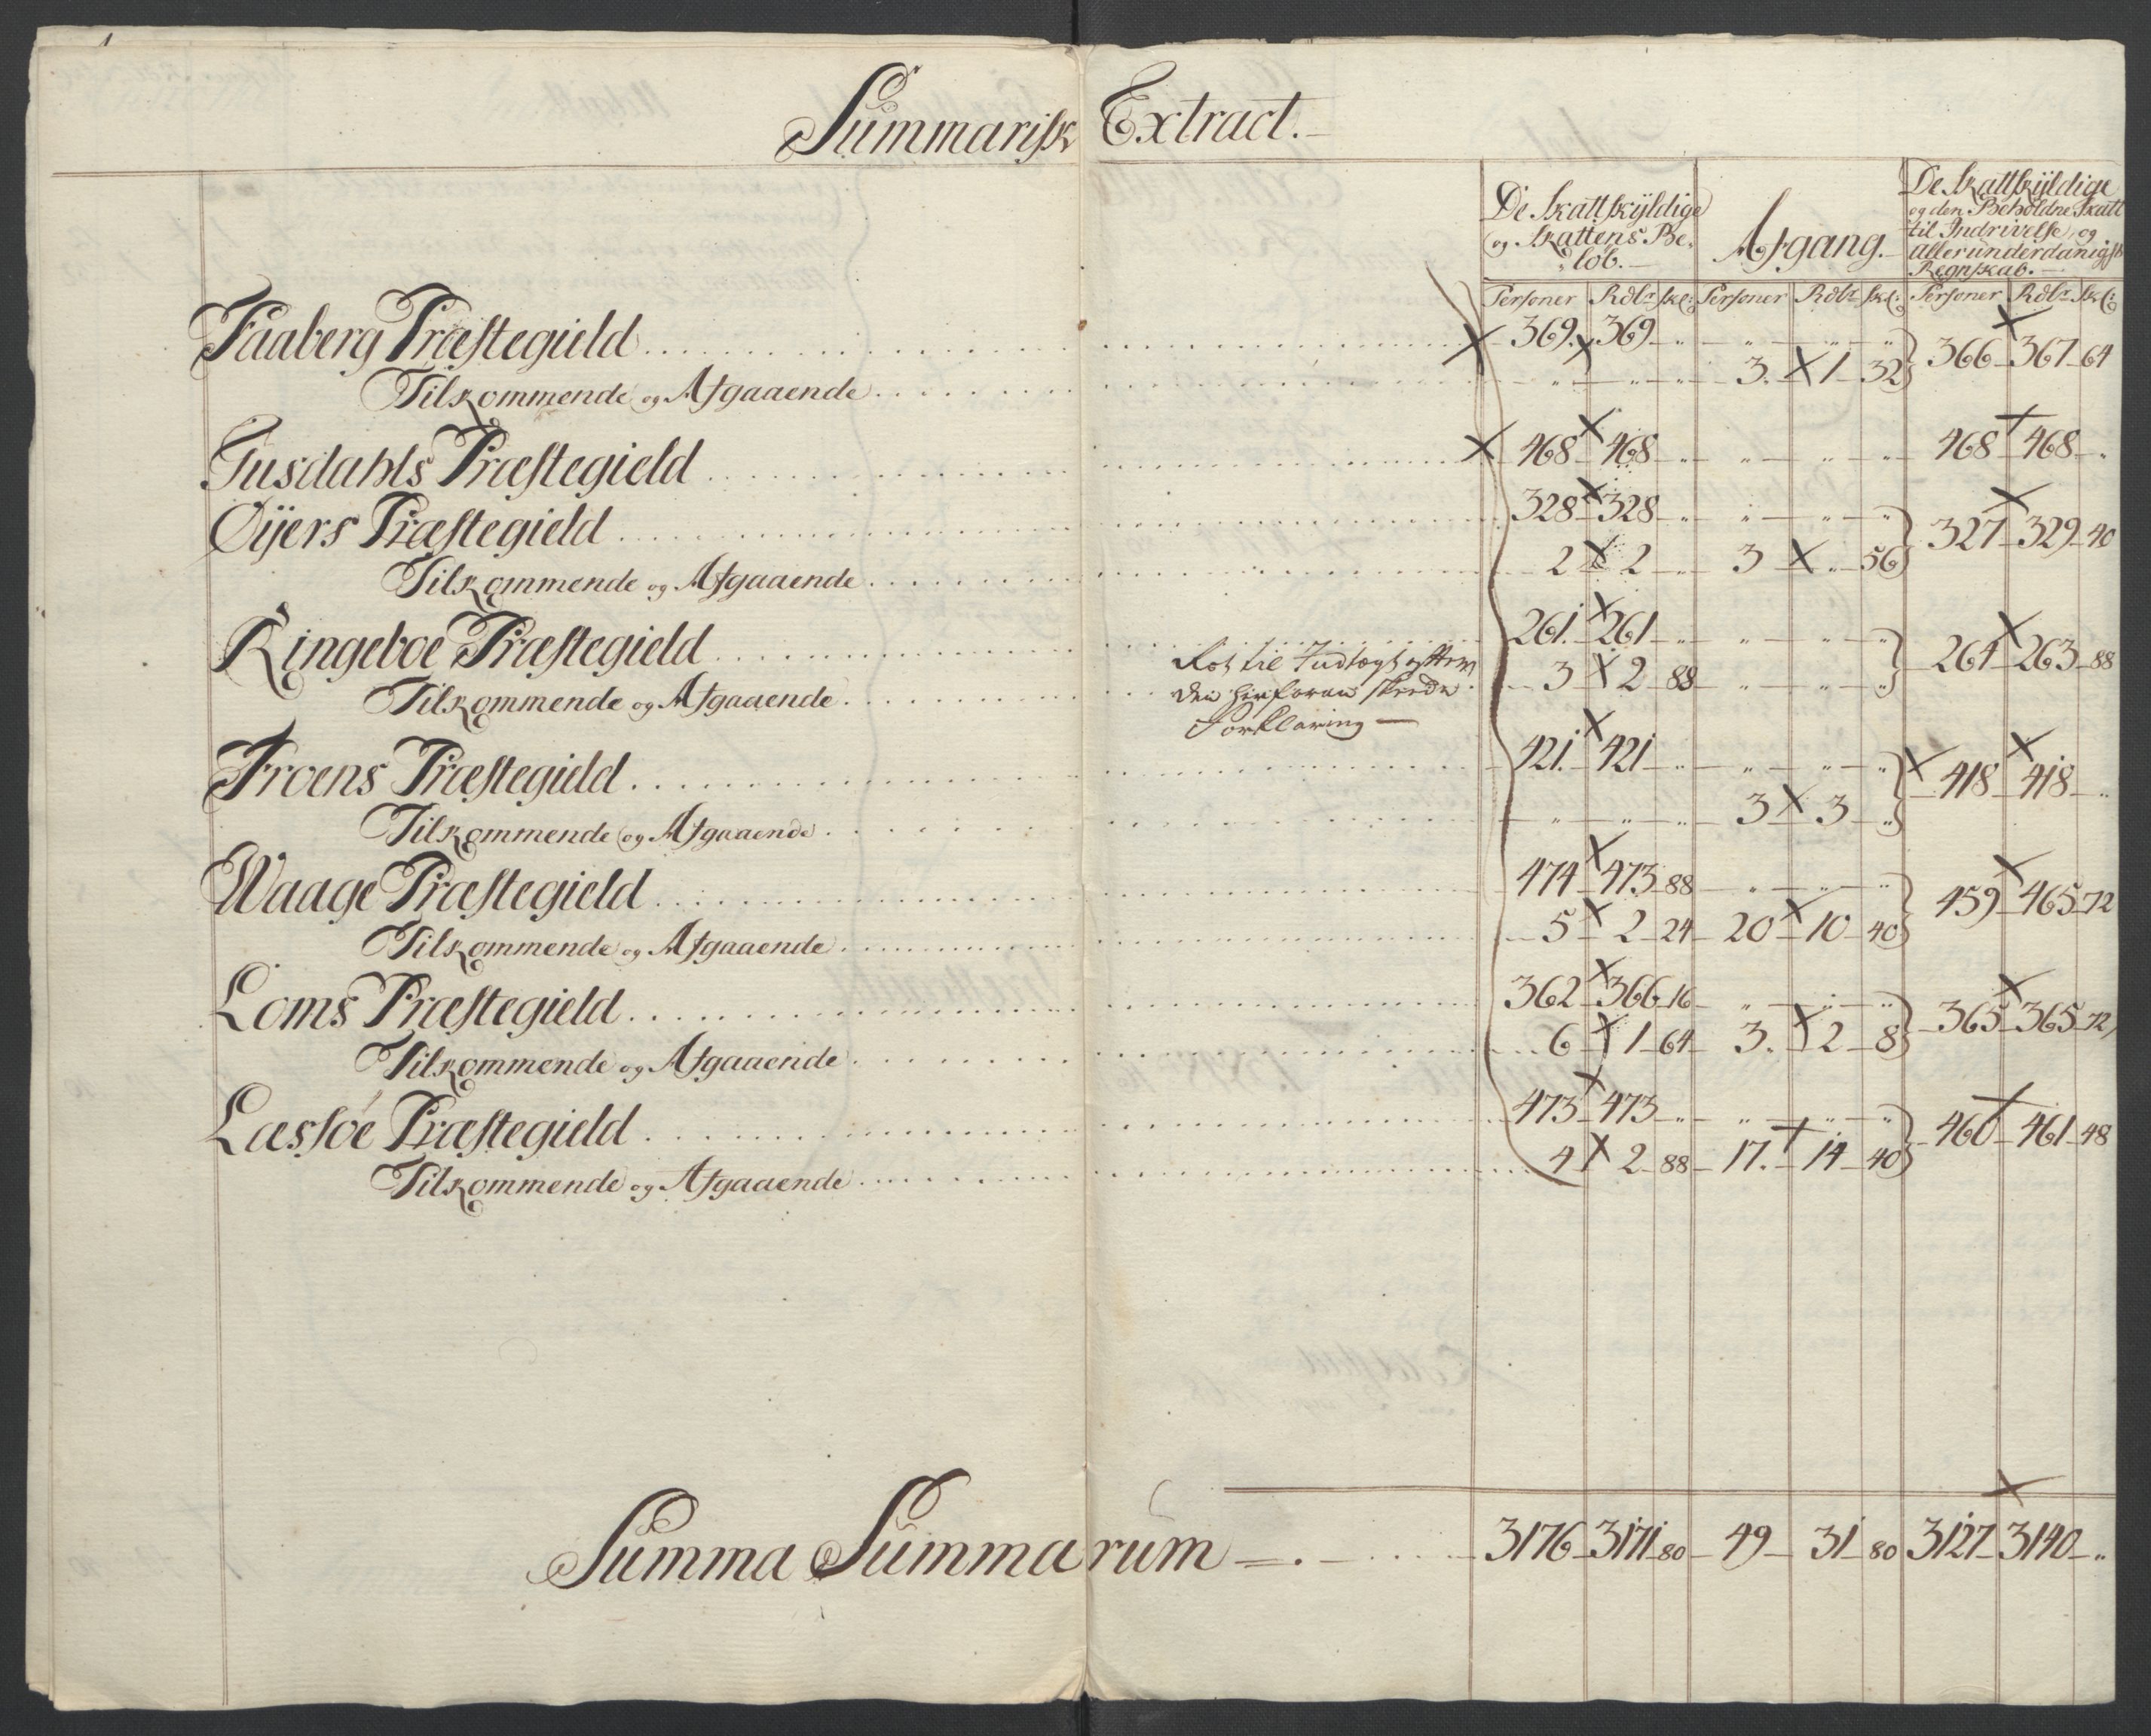 Summarisk Extract.
De Skattskyldige
og Skattens Be-
løb.
Afgang.
De Skattskyldige
og den Beholdne Skatt
til Indrivelse, og
allerunderdanigst
Regnskab.
Personer Rdlr skl: Personer Rdlr skl: Personer Rdlr skl:
Faaberg Præstegield 369. 369 " " " " } 366 367 64
Tilkommende og Afgaaende " " " 3. 1 32
Gusdahls Præstegield 468 468 " " " " 468 468 "
Øyers Præstegield 328 328 " " " " } 327 329 40
Tilkommende og Afgaaende 2 2 " 3 " 56
Ringeboe Præstegield 261. 261 " " " " } 264 263 88
Tilkommende og Afgaaende 3 2 88 " " "
til Indtægt efter
den herforan skeede
Forklaring
Froens Præstegield 421. 421 " " " " } 418 418 "
Tilkommende og Afgaaende " " " 3 3 "
Waage Præstegield 474 473 88 " " " } 459 465 72
Tilkommende og Afgaaende 5 2 24 20 10 40
Loms Præstegield 362 366 16 " " " } 365 365 72
Tilkommende og Afgaaende 6 1 64 3. 2 8
Læssøe Præstegield 473 473 " " " " } 460 461 48
Tilkommende og Afgaaende 4 2 88 17. 14 40
Summa Summarum 3176 3171 80 49 31 80 3127 3140 "